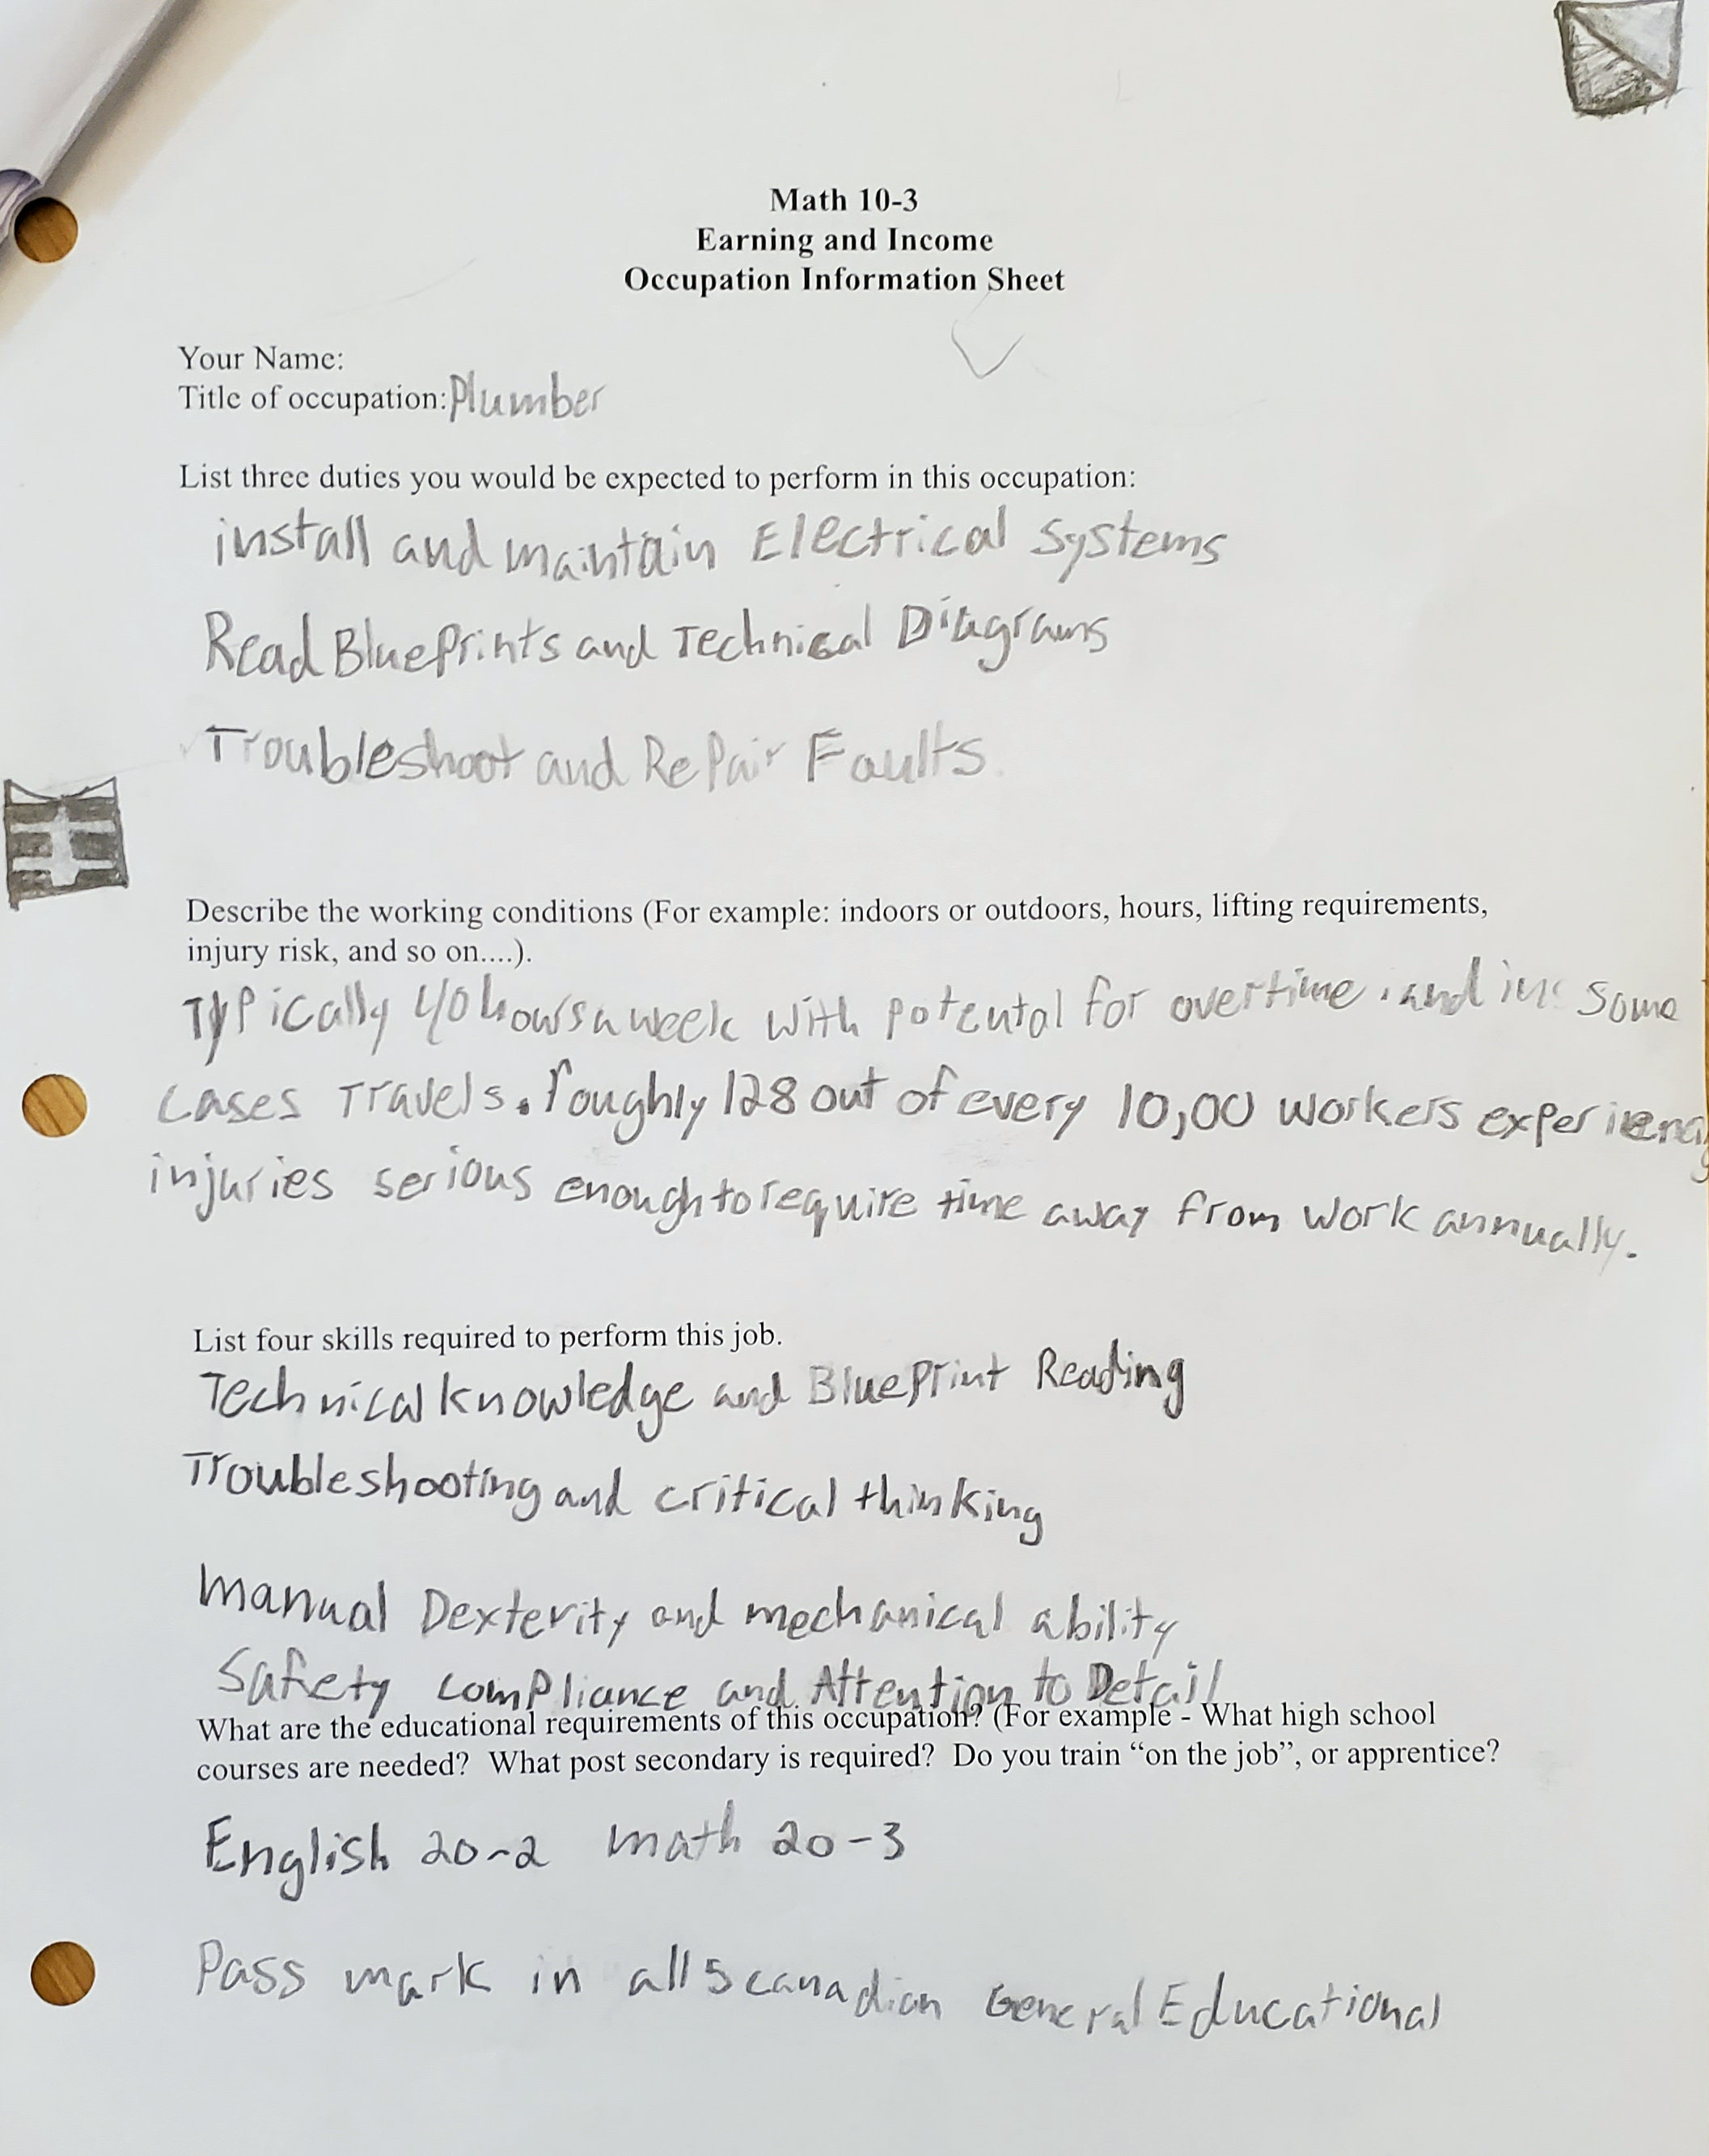 Math 10-3
Earning and Income
Occupation Information Sheet
Your Name:
Title of occupation: Plumber
List three duties you would be expected to perform in this occupation:
install and maintain Electrical Systems
Read BluePrints and Technical Diagrams
Troubleshoot and RePair Faults
Describe the working conditions (For example: indoors or outdoors, hours, lifting requirements,
injury risk, and so on....).
Typically 40 hours a week with potental for overtime. and in some
cases Travels. roughly 128 out of every 10,00 workers
injuries serious enough to require time away from work annually.
List four skills required to perform this job.
Technical knowledge and BluePrint Reading
Troubleshooting and critical thinking
manual Dexterity and mechanical ability
Safety comPliance and Attention to Detail
What are the educational requirements of this occupation? (For example - What high school
courses are needed? What post secondary is required? Do you train “on the job”, or apprentice?
English 20-2 math 20-3
Pass mark in all 5 canadian General Educational